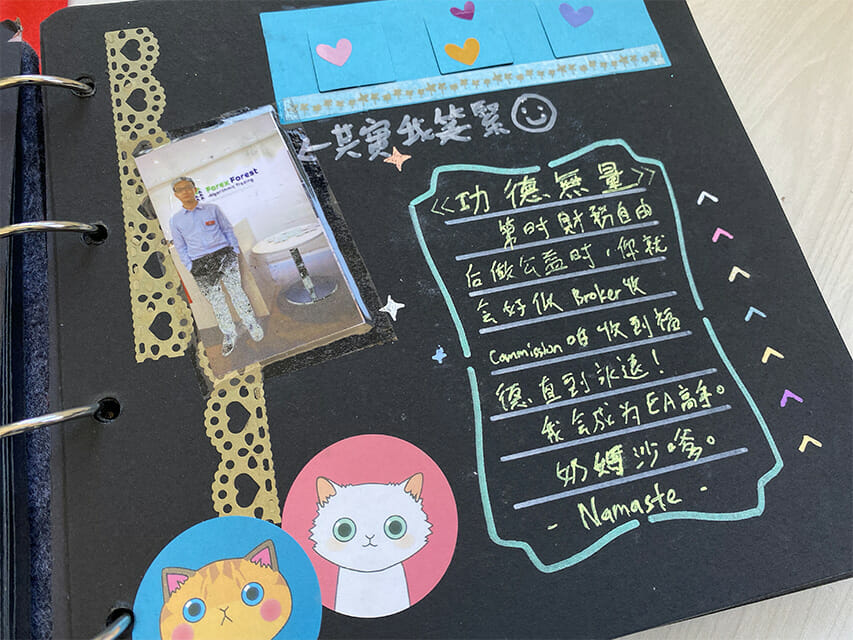 Forex Forest
Algorithmic Trading
←其實我笑緊
《功德無量》
第时財務自由
后做公益时，你就
会好似 Broker 收
Commission 咁收到福
德，直到永遠！
我会成为EA高手。
奶媽沙嗲。
- Namaste -